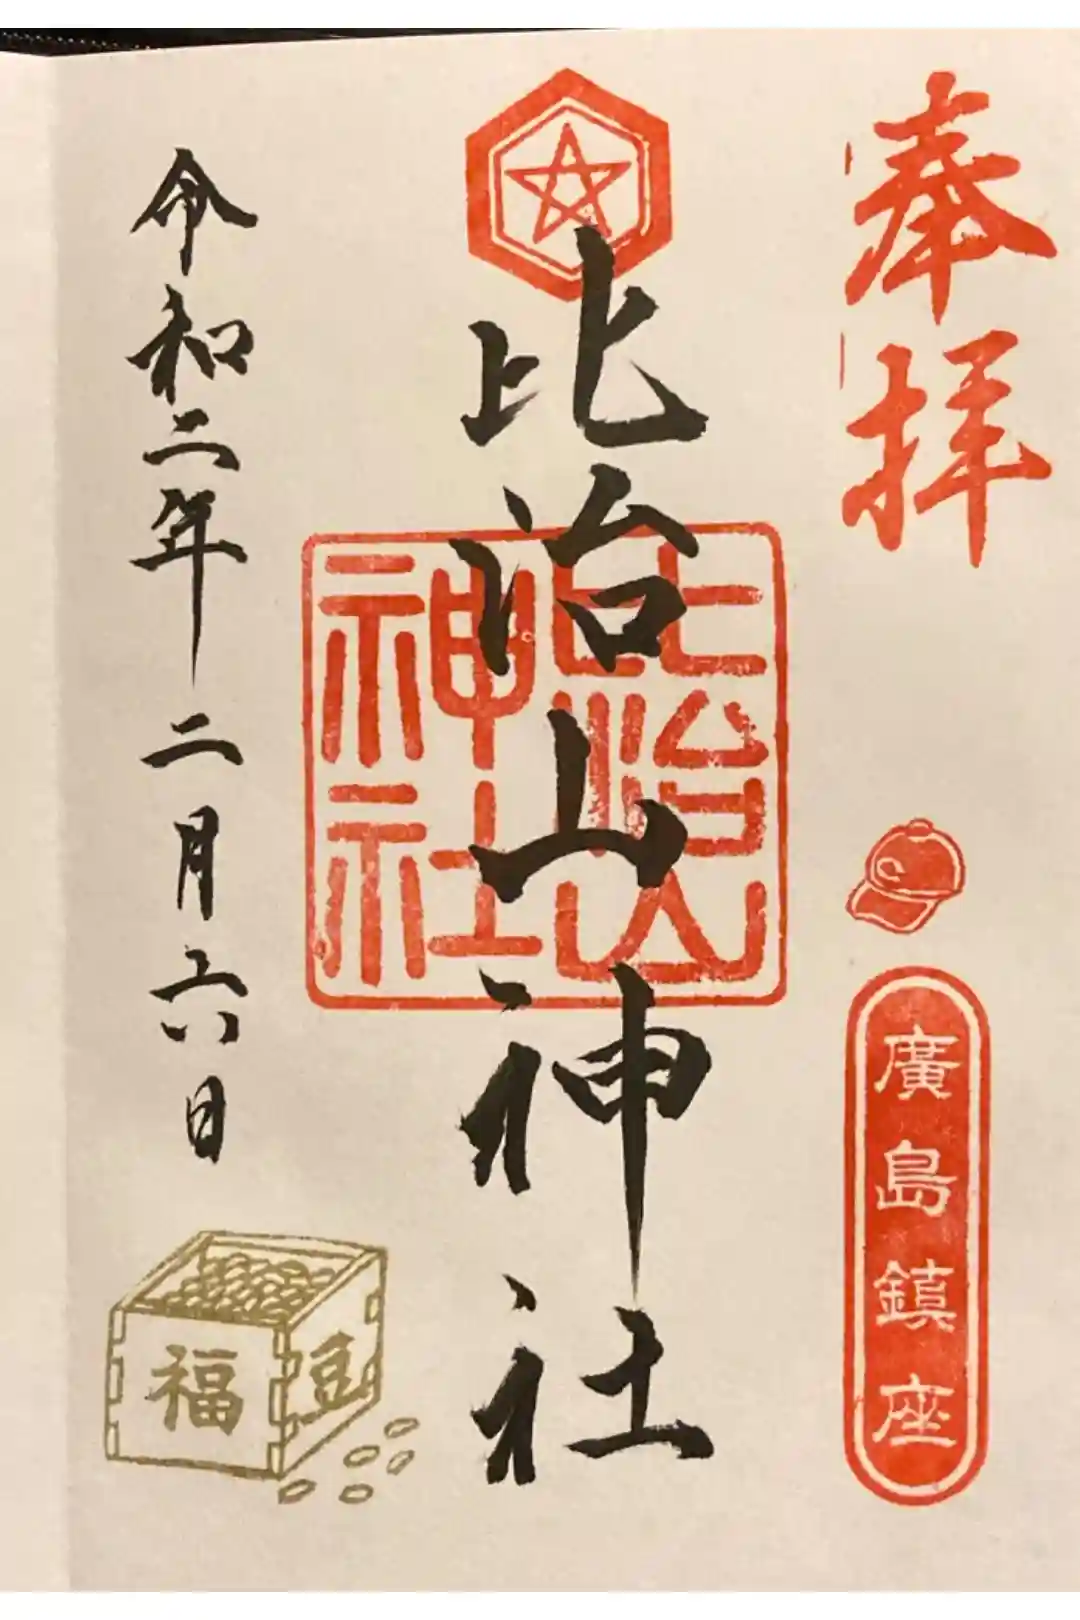 奉拝
廣島鎮座
比治山神社
比治山
神社
令和二年 二月六日
福
豆